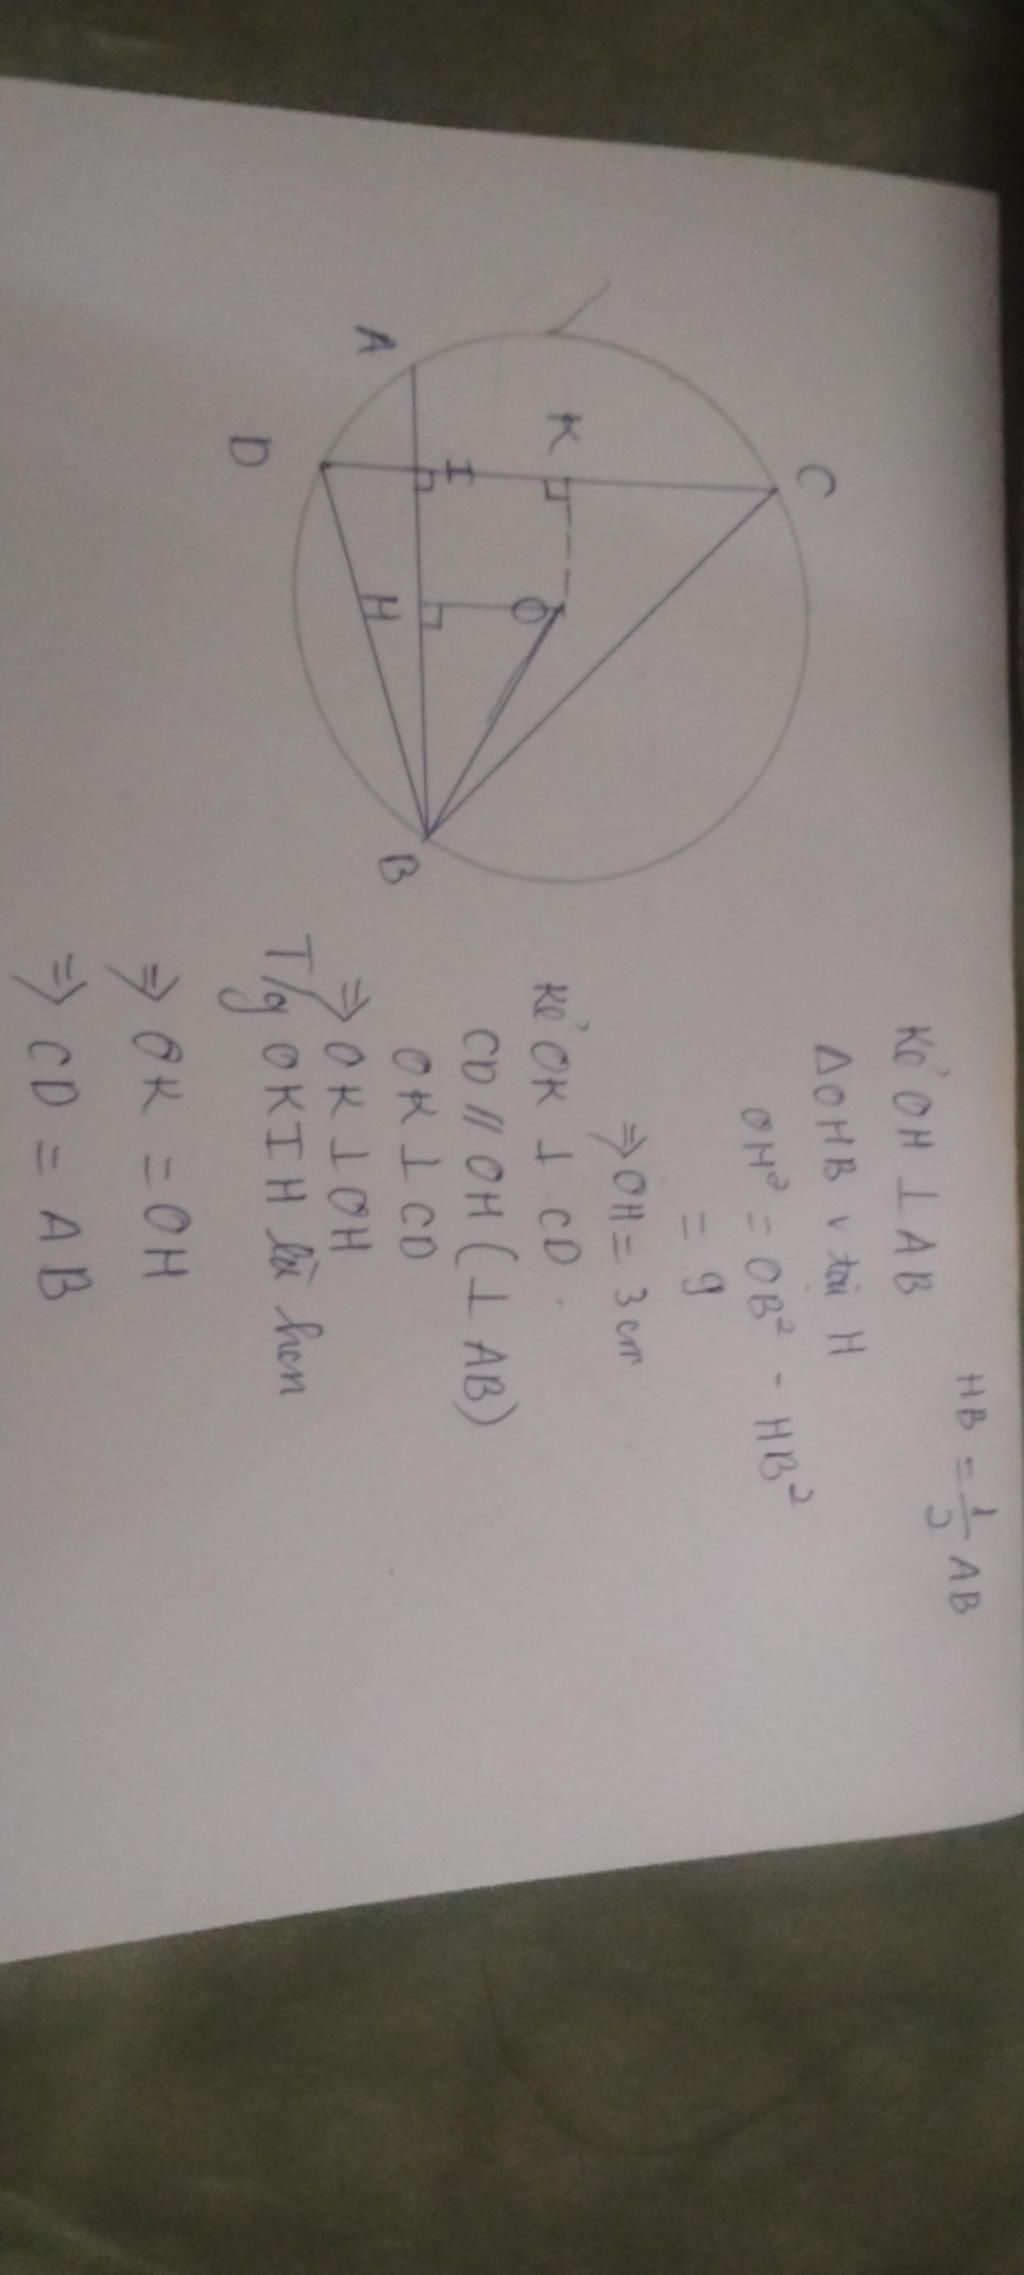 C
K
O
I
A
H
D
B
HB = 1/2 AB
Kẻ OH ⊥ AB
Δ OHB v tại H
OH² = OB² - HB²
= 9
⇒ OH = 3 cm
Kẻ OK ⊥ CD
CD // OH (⊥ AB)
OK ⊥ CD
⇒ OK ⊥ OH
T/g OKIH là hcn
⇒ OK = OH
⇒ CD = AB